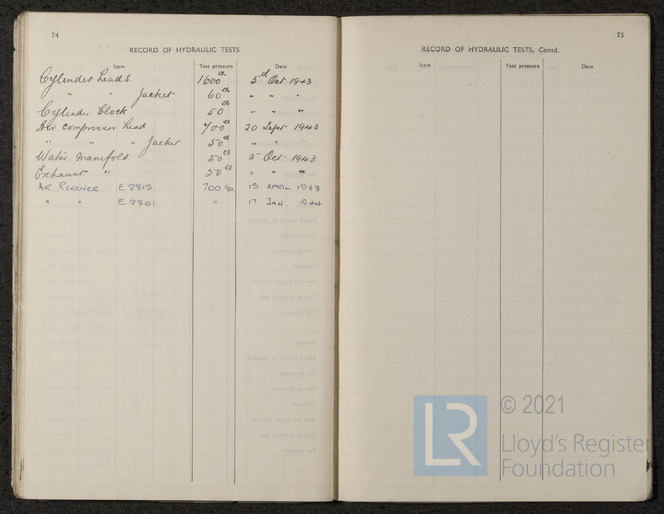 74
RECORD OF HYDRAULIC TESTS
Item Test pressure Date
Cylinder heads 1600 lbs 5th Oct 1943
" " Jacket 60 lbs " " "
Cylinder block 50 lbs " " "
Air compressor head 700 lbs 20 Sept 1943
" " " Jacket 50 lbs " "
Water Manifold 50 lbs 5 Oct 1943
Exhaust " 50 lbs " " "
AIR RECEIVER E2815. 700 lbs. 15 APRIL 1943
" " E2801 " 17 JAN. 1944
75
RECORD OF HYDRAULIC TESTS, Contd.
Item Test pressure Date
LR © 2021
Lloyd's Register
Foundation